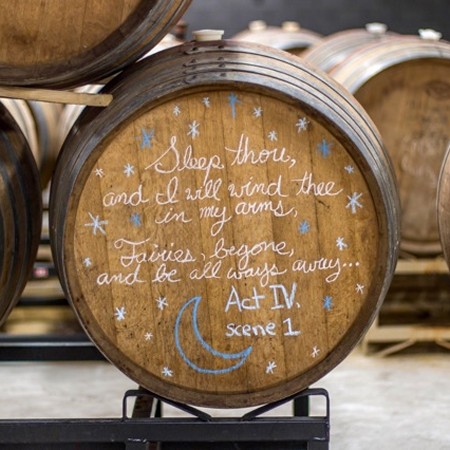 Sleep thou,
and I will wind thee
in my arms,
Fairies, begone,
and be all ways away...
Act IV,
scene 1